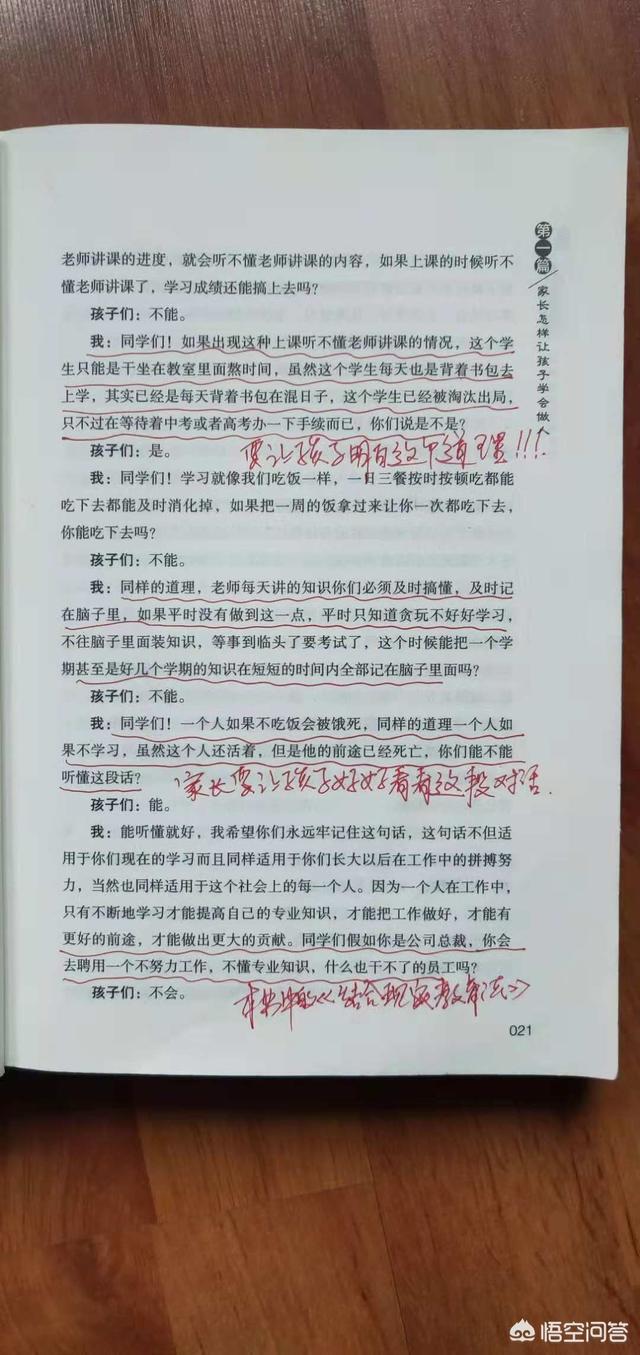 第一篇
家长怎样让孩子学会做人
老师讲课的进度，就会听不懂老师讲课的内容，如果上课的时候听不
懂老师讲课了，学习成绩还能搞上去吗？
孩子们：不能。
我：同学们！如果出现这种上课听不懂老师讲课的情况，这个学
生只能是干坐在教室里面熬时间，虽然这个学生每天也是背着书包去
上学，其实已经是每天背着书包在混日子，这个学生已经被淘汰出局，
只不过在等待着中考或者高考办一下手续而已，你们说是不是？
孩子们：是。
要让孩子明白这个道理!!!
我：同学们！学习就像我们吃饭一样，一日三餐按时按顿吃都能
吃下去都能及时消化掉，如果把一周的饭拿过来让你一次都吃下去，
你能吃下去吗？
孩子们：不能。
我：同样的道理，老师每天讲的知识你们必须及时搞懂，及时记
在脑子里，如果平时没有做到这一点，平时只知道贪玩不好好学习，
不往脑子里面装知识，等事到临头了要考试了，这个时候能把一个学
期甚至是好几个学期的知识在短短的时间内全部记在脑子里面吗？
孩子们：不能。
我：同学们！一个人如果不吃饭会被饿死，同样的道理一个人如
果不学习，虽然这个人还活着，但是他的前途已经死亡，你们能不能
听懂这段话？
家长要让孩子好好看看这段对话.
孩子们：能。
我：能听懂就好，我希望你们永远牢记住这句话，这句话不但适
用于你们现在的学习而且同样适用于你们长大以后在工作中的拼搏努
力，当然也同样适用于这个社会上的每一个人。因为一个人在工作中，
只有不断地学习才能提高自己的专业知识，才能把工作做好，才能有
更好的前途，才能做出更大的贡献。同学们假如你是公司总裁，你会
去聘用一个不努力工作，不懂专业知识，什么也干不了的员工吗？
孩子们：不会。
本书中的《结合现实教育法》
021
悟空问答